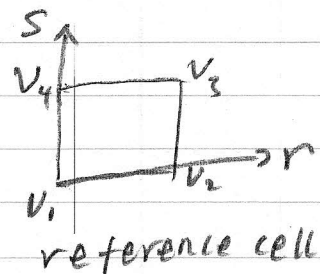 S
V4 V3
r
V1 V2
reference cell